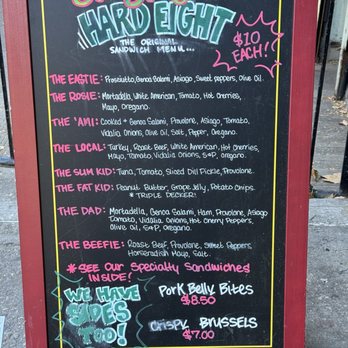 HARD EIGHT
THE ORIGINAL
SANDWICH MENU...
$10
EACH!
THE EASTIE: Prosciutto, Genoa Salami, Asiago, Sweet peppers, Olive Oil.
THE ROSIE: Mortadella, White American, Tomato, Hot Cherries,
Mayo, Oregano.
THE 'AMI: Cooked & Genoa Salami, Provolone, Asiago, Tomato,
Vidalia Onions, Olive Oil, Salt, Pepper, Oregano.
THE LOCAL: Turkey, Roast Beef, White American, Hot Cherries,
Mayo, Tomato, Vidalia Onions, S+P, oregano.
THE SLIM KID: Tuna, Tomato, Sliced Dill Pickle, Provolone.
THE FAT KID: Peanut Butter, Grape Jelly, Potato Chips.
* TRIPLE DECKER!
THE DAD: Mortadella, Genoa Salami, Ham, Provolone, Asiago
Tomato, Vidalia Onions, Hot Cherry Peppers,
Olive Oil, S+P, Oregano.
THE BEEFIE: Roast Beef, Provolone, Sweet Peppers
Horseradish Mayo, Salt.
* SEE OUR Specialty Sandwiches
INSIDE!
WE HAVE
SIDES
TOO!
Pork Belly Bites
$8.50
CRISPY BRUSSELS
$7.00